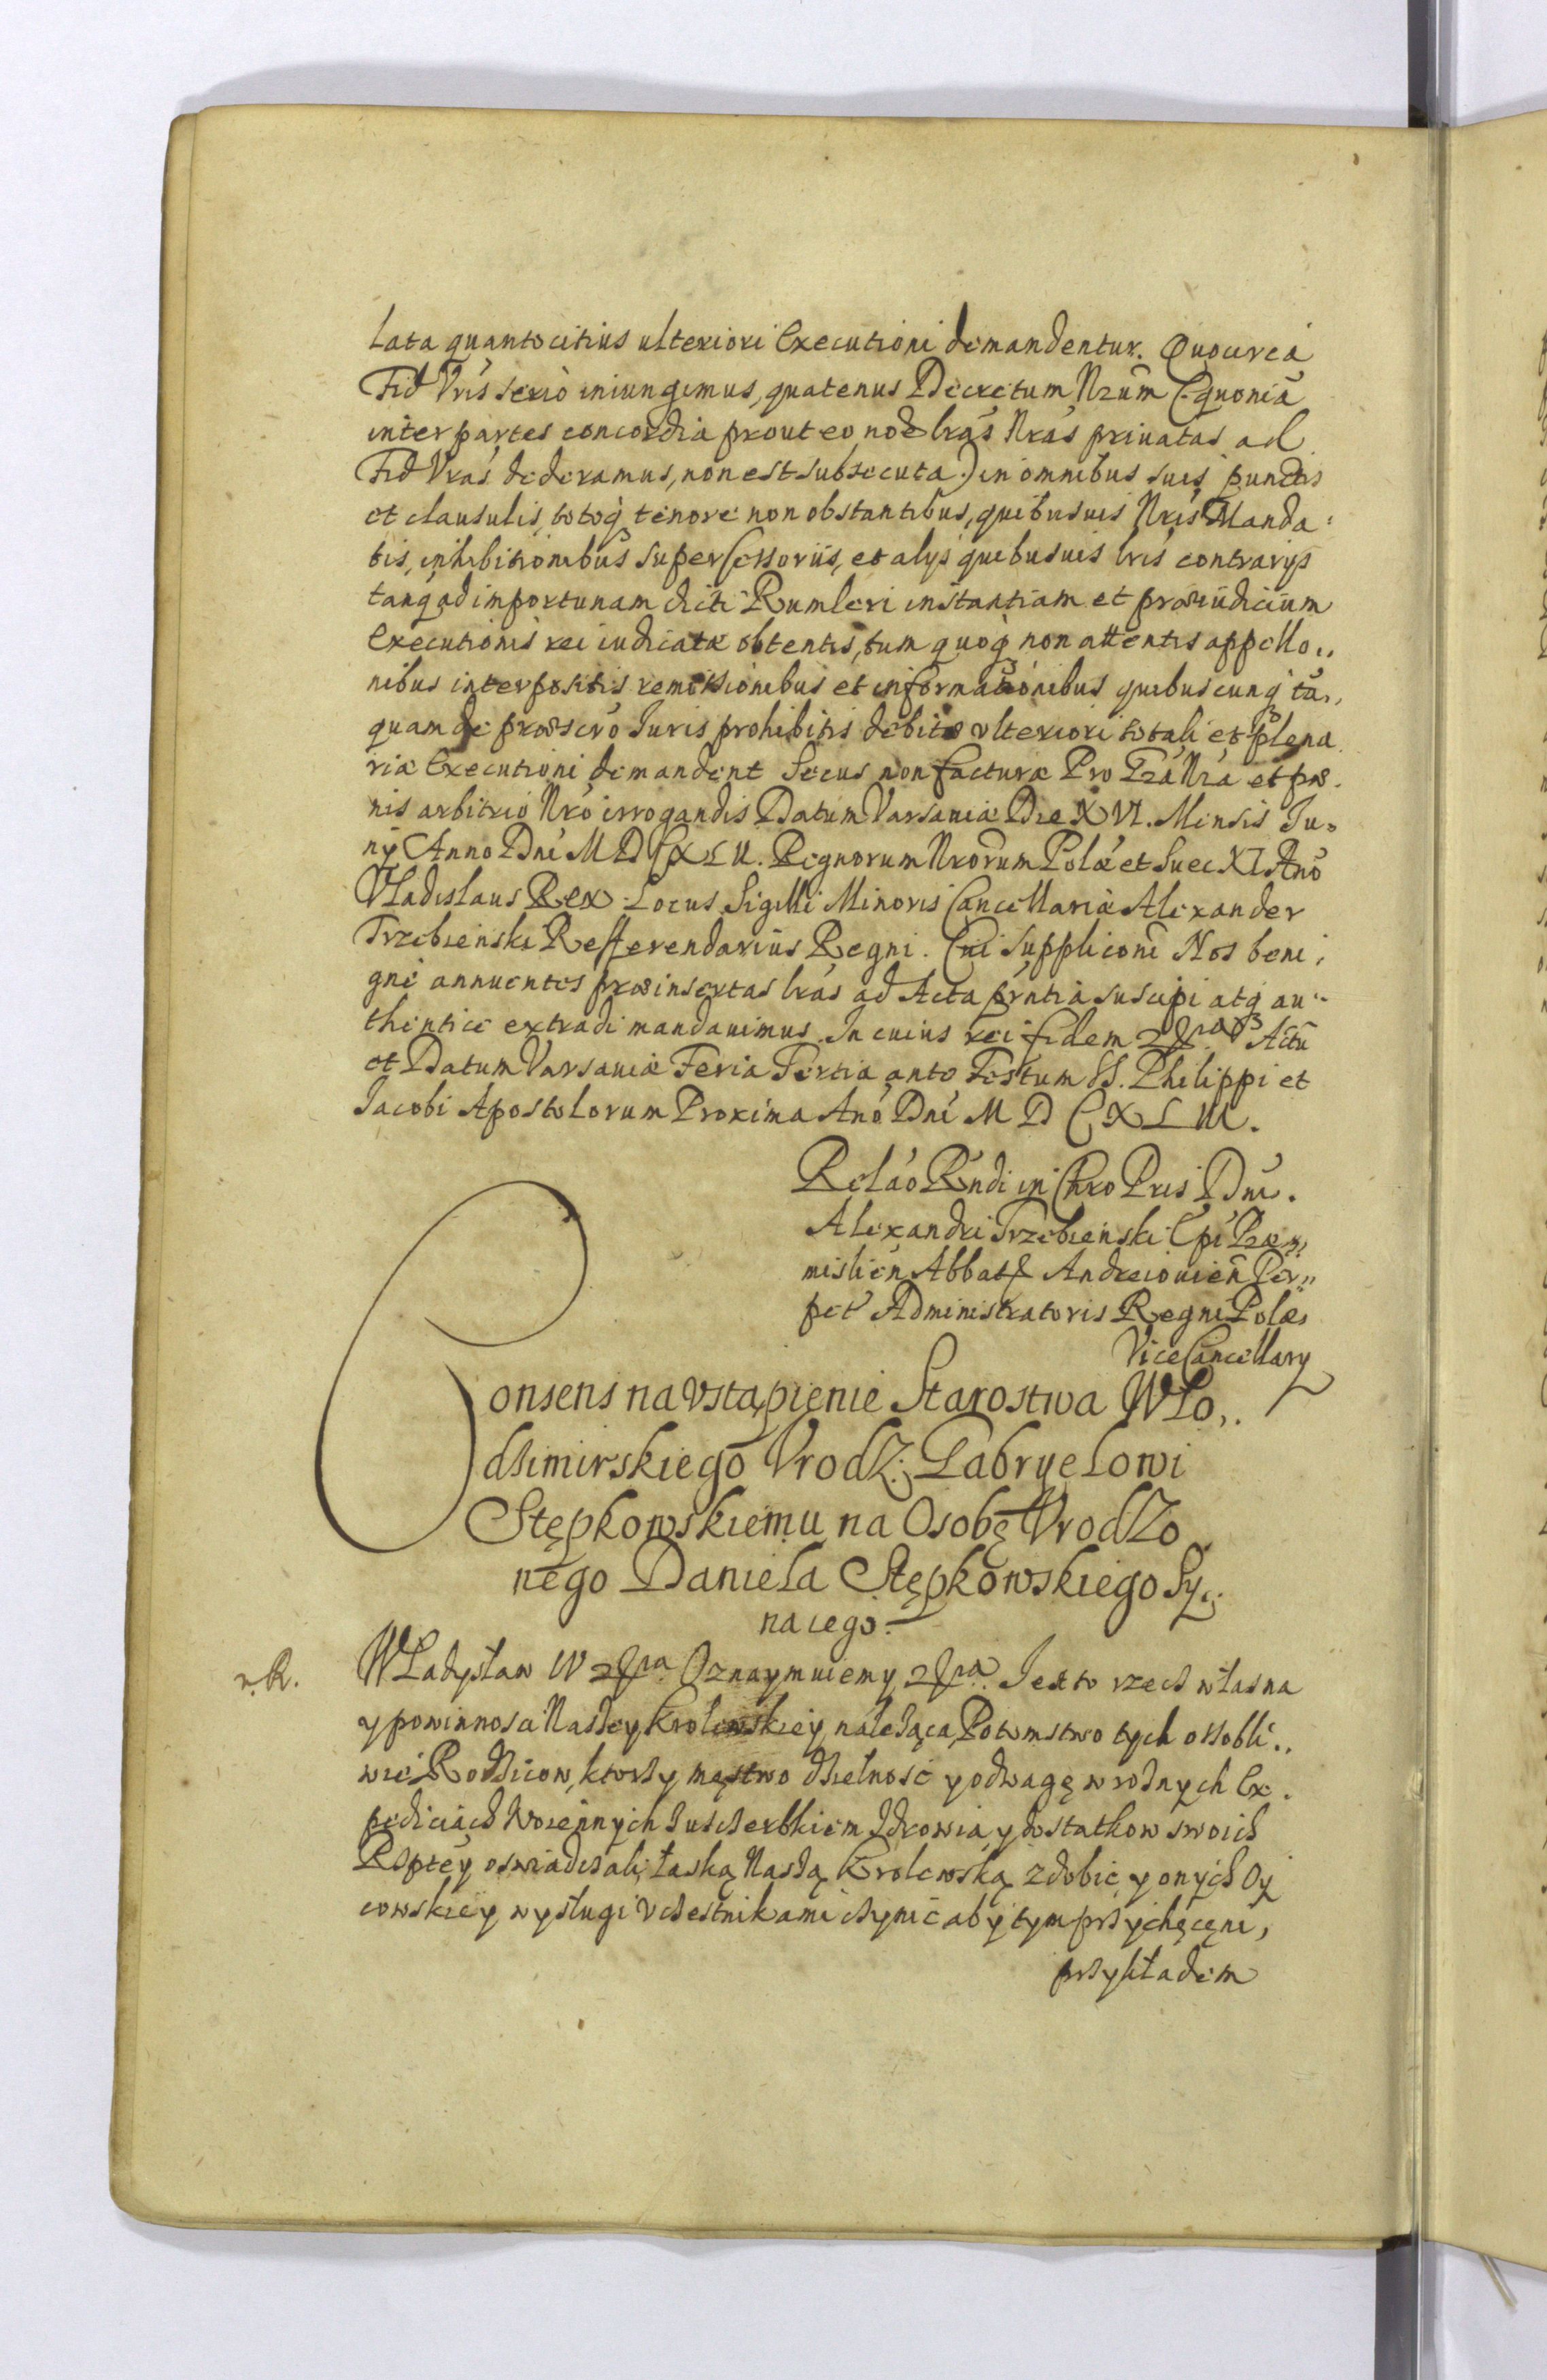 lata quantocitius ulteriori Executioni demandentur. Quocircá
Fid Vris serió iniungimus, quatenus Decretum Nrũm (quoniá
inter partes concordia prout eo noẽ lrás Nrás priuatas ad
Fid Vrás dederamus, non est subsecuta.) in omnibus suis punctis
et clausulis, totoq̀ tenore non obstantibus, quibusuis Nris Manda:
tis, inhibitionibus supersessoriis, et alys quibusuis lris contrarys
tanq̀ ad importunam dicti Rumleri instantiam et præiudicium
Executionis rei iudicatæ obtentis, tum quoq̀ non attentis appello,,
nibus interpositis remissionibus et informationibus quibuscunq̀ tá,,
quam de præscró Iuris prohibitis debitæ vlteriori totali et plena
riæ Executioni demandent secus non facturæ Pro Grá Nrá et pæ.
nis arbitrió Nró irrogandis Datum Varsauiæ Die XVI. Mensis Iu,,
ny Anno Dni M D C X L II. Regnorum Nrorum Polæ et Suec XI Anó
Vladislaus Rex Locus Sigilli Minoris Cancellariæ Alexander
Trzebienski Refferendarius Regni. Cui suppliconi Nos beni,
gné annuentes præinsertas lrás ad Acta prntia suscipi atq̀ au,,
thenticé extradi mandauimus. In cuius rei fidem Actũ
et Datum Varsauiæ Feria Tertia ante Festum SS. Philippi et
Iacobi Apostolorum Proxima Anó Dni M D C X L III.
Reláo Rńdi in Chro Pris Dni.
Alexandri Trzebienski Epi Præ,,
mislień Abbat Andreiouień Per,,
pet Administratoris Regni Polæ
ViceCancellary
Consens na Vstąpienie Starostwa Wło,,
dzimirskiego Vrodz: Gabryelowi
Stępkowskiemu na Osobę Vrodzo
nego Daniela Stępkowskiego Sy,,
na iego.
r. R.
Władysław IV Oznaymuiemy Iest to rzecz własna
y powinnosci Naszey Krolewskiey należąca, Potomstwo tych ossobli,,
wie Rodzicow, ktorzy męstwo dzielność y odwagę w rożnych Ex,
pediciach Woiennych z uszczerbkiem zdrowia y dostatkow swoich
Rzptey oswiadczali, łaską Naszą Krolewską zdobić, y onych Oy
cowskiey wysługi vczestnikami czynić aby tym przychęceni,
przykładem